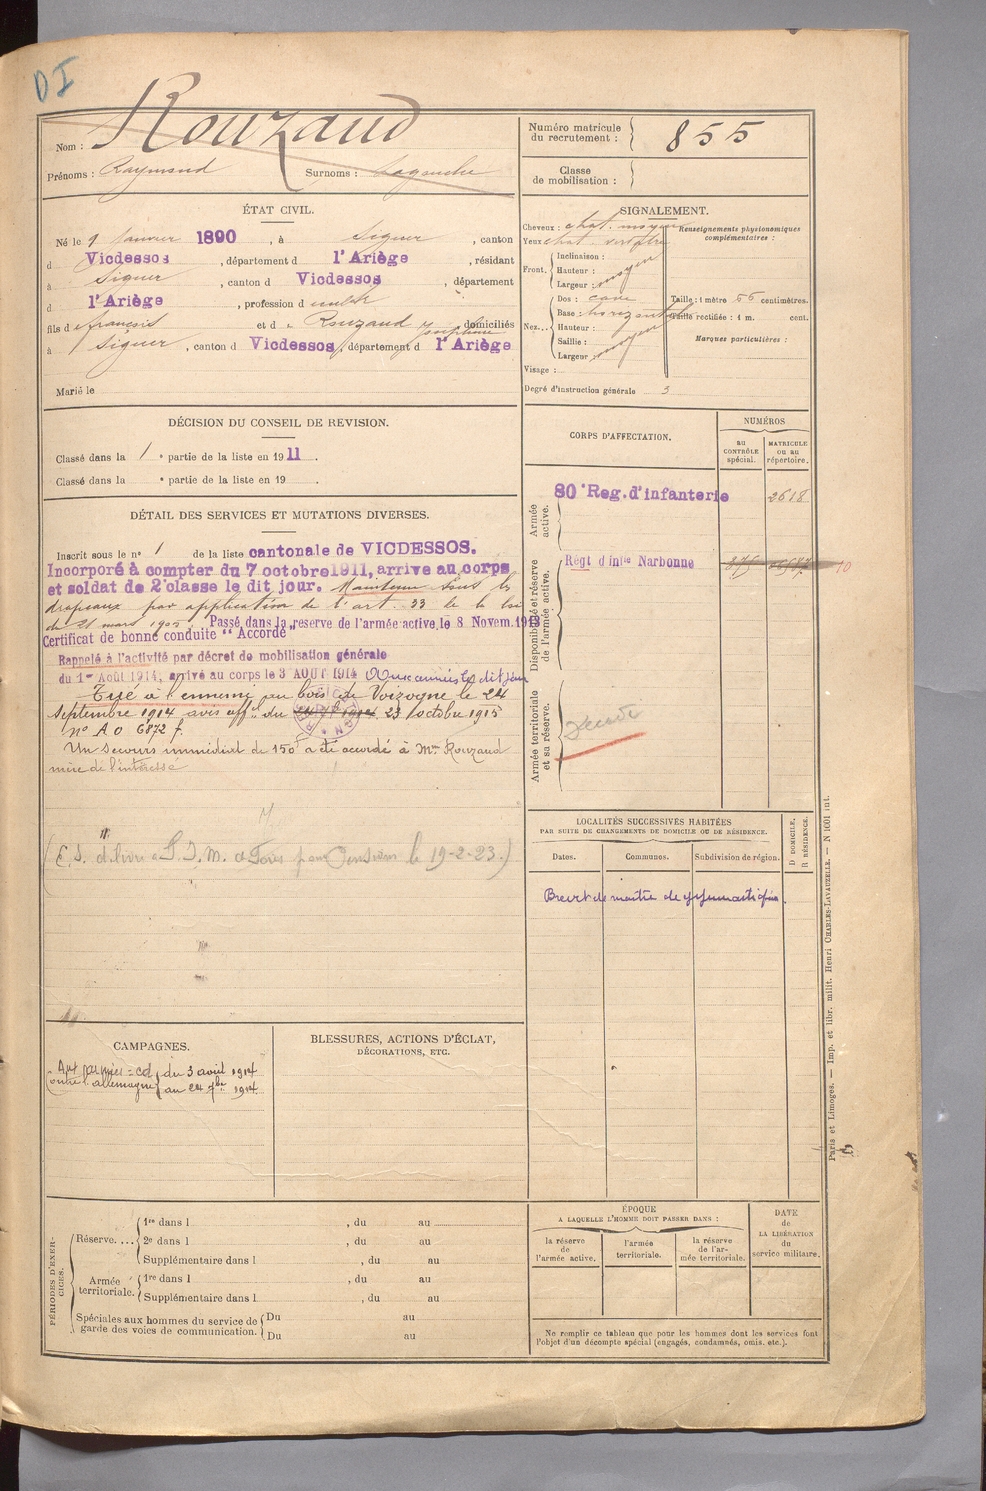 DI
Nom : Rouzaud
Prénoms : Raymond Surnoms :
Numéro matricule du recrutement : 855
Classe de mobilisation :
ÉTAT CIVIL.
Né le 9 Janvier 1890, à Siguer, canton
d Vicdessos, département d l'Ariège, résidant
à Siguer, canton d Vicdessos, département
d l'Ariège, profession d cult
fils de françois et d e Rouzaud Josephine domiciliés
à Siguer, canton d Vicdessos, département d l'Ariège
Marié le
SIGNALEMENT.
Cheveux : chat. moyen
Yeux chat. verdâtre
Front. Inclinaison :
Hauteur : moyen
Largeur :
Nez... Dos : cave
Base : horizontale
Hauteur : moyen
Saillie :
Largeur :
Visage :
Renseignements physionomiques complémentaires :
Taille : 1 mètre 66 centimètres.
Taille rectifiée : 1 m. cent.
Marques particulières :
Degré d'instruction générale 3
DÉCISION DU CONSEIL DE REVISION.
Classé dans la 1 e partie de la liste en 1911.
Classé dans la e partie de la liste en 19 .
DÉTAIL DES SERVICES ET MUTATIONS DIVERSES.
Inscrit sous le n° 1 de la liste cantonale de VICDESSOS.
Incorporé à compter du 7 octobre 1911, arrive au corps
et soldat de 2e classe le dit jour. Maintenu sous les
drapeaux par application de l'art. 33 de la loi
du 21 mars 1905. Passé dans la reserve de l'armée active, le 8 Novem. 1913
Certificat de bonne conduite "Accordé"
Rappelé à l'activité par décret de mobilisation générale
du 1er Août 1914, arrivé au corps le 3 AOUT 1914 Aux armées le dit jour
Tué à l'ennemi au bois de Voizogne le 24
Septembre 1914 avis offel du 23 octobre 1915
n° A O 6872 f.
Un secours immédiat de 150f a été accordé à Mme Rouzaud
mère de l'intéressé
(E.S. d. livré le 19-2-23.)
CORPS D'AFFECTATION.
NUMÉROS
au CONTRÔLE spécial.
MATRICULE ou au répertoire.
Armée active.
80e Reg. d'infanterie 2618
Disponibilité et réserve de l'armée active.
Régt d'inie Narbonne
Armée territoriale et sa réserve.
Décédé
LOCALITÉS SUCCESSIVES HABITÉES
PAR SUITE DE CHANGEMENTS DE DOMICILE OU DE RÉSIDENCE.
Dates. Communes. Subdivision de région.
D DOMICILE. R RÉSIDENCE.
Brevet de maître de gymnastique.
CAMPAGNES.
contre l'allemagne du 3 août 1914
au 24 7bre 1914
BLESSURES, ACTIONS D'ÉCLAT,
DÉCORATIONS, ETC.
PÉRIODES D'EXERCICES.
Réserve.... 1re dans l , du au
2e dans l , du au
Supplémentaire dans l , du au
Armée territoriale. 1re dans l , du au
Supplémentaire dans l , du au
Spéciales aux hommes du service de garde des voies de communication. Du au
Du au
ÉPOQUE
A LAQUELLE L'HOMME DOIT PASSER DANS :
la réserve de l'armée active.
l'armée territoriale.
la réserve de l'armée territoriale.
DATE de LA LIBÉRATION du service militaire.
Ne remplir ce tableau que pour les hommes dont les services font
l'objet d'un décompte spécial (engagés, condamnés, omis, etc.).
Paris et Limoges. — Imp. et libr. milit. Henri CHARLES-LAVAUZELLE. — N 1001 int.